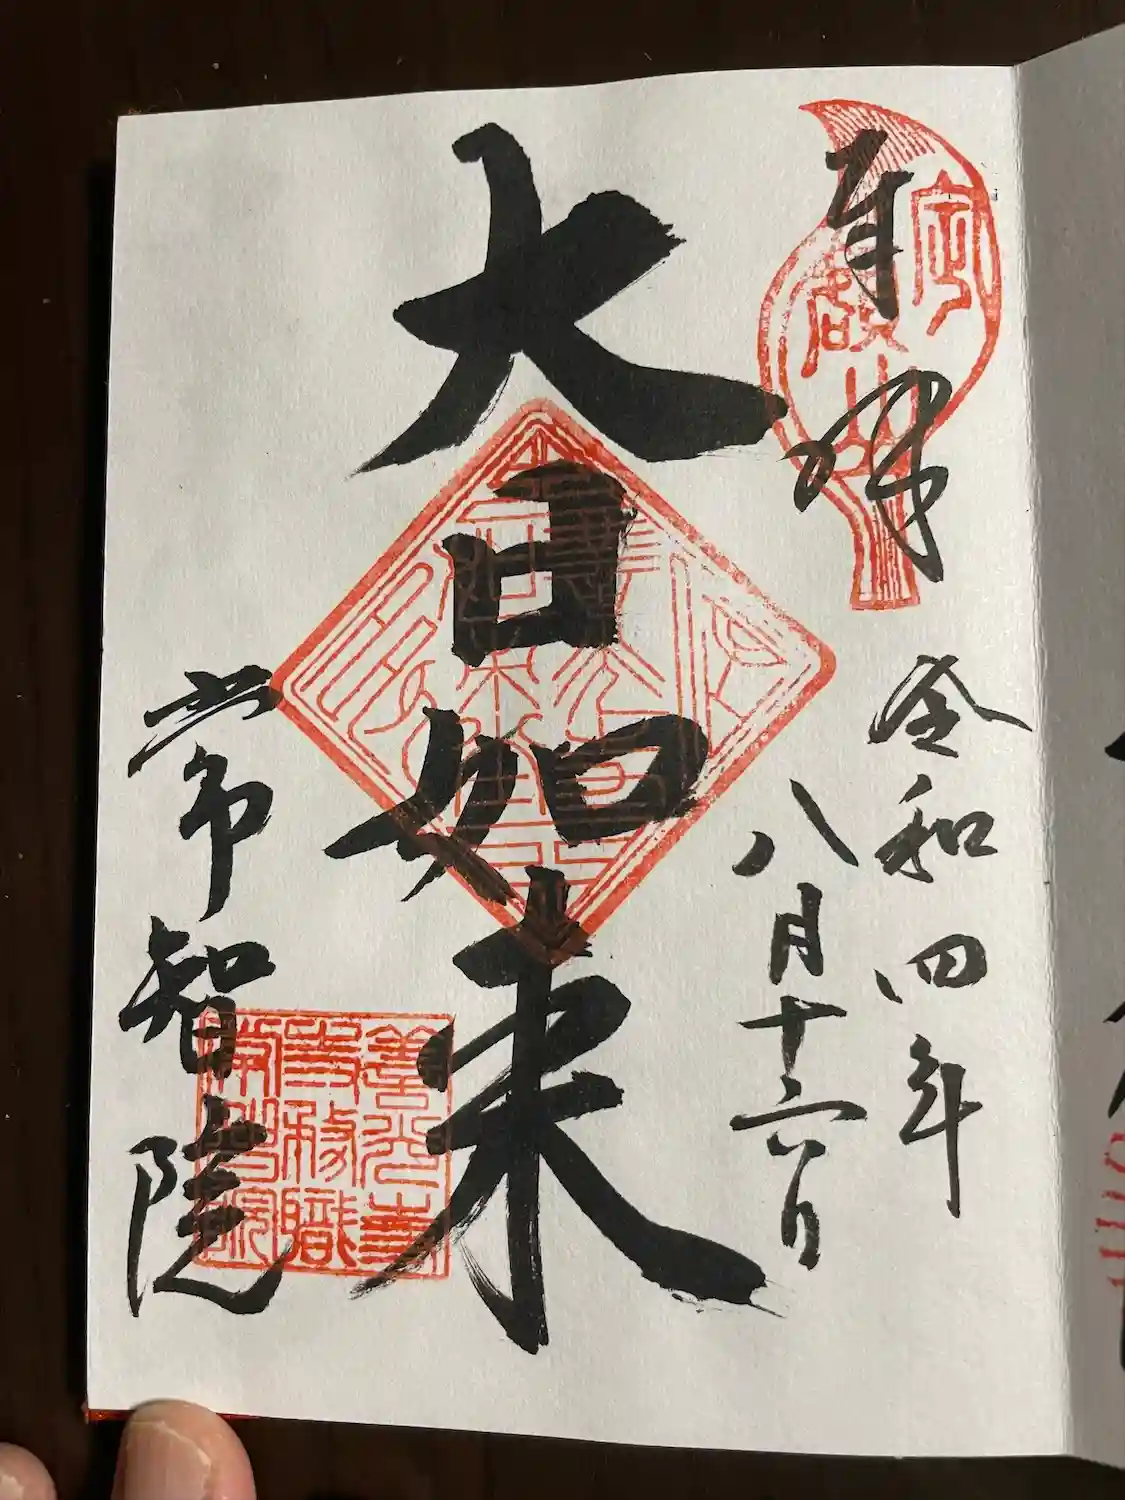 奉拝
定額山
令和四年
八月十六日
大日如来
常智院
善光寺
務職
常智院